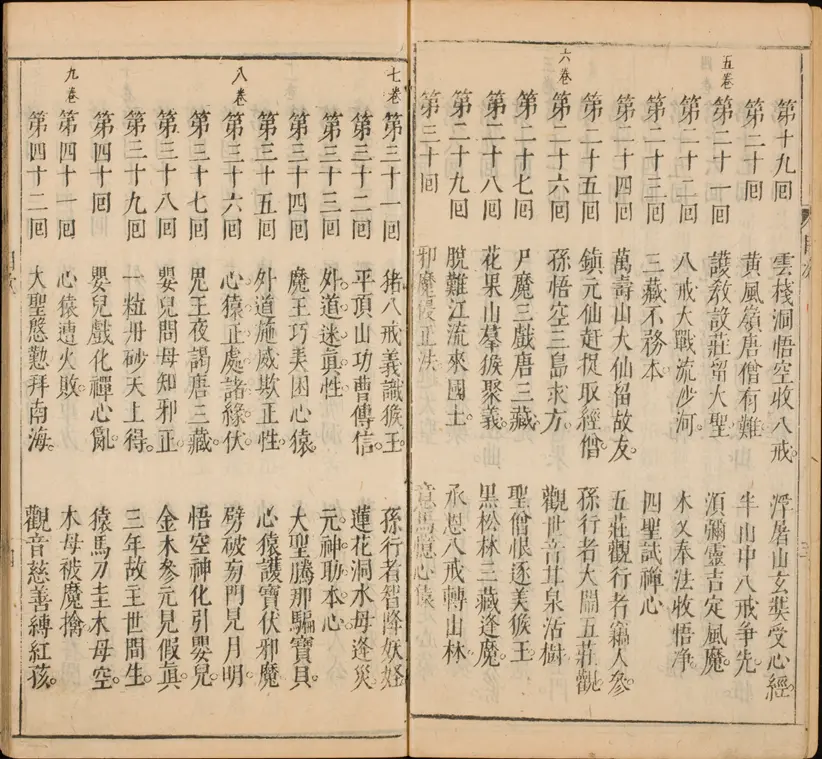 第十九回 雲棧洞悟空收八戒。 浮屠山玄奘受心經。
第二十回 黃風嶺唐僧有難。 半山中八戒爭先。
五卷 第二十一回 護教設莊留大聖。 須彌靈吉定風魔。
第二十二回 八戒大戰流沙河。 木叉奉法收悟净
第二十三回 三藏不務本。 四聖試禪心
第二十四回 萬壽山大仙留故友。 五莊觀行者竊人參。
第二十五回 鎮元仙赶捉取經僧。 孫行者大鬧五莊觀。
六卷 第二十六回 孫悟空三島求方。 觀世音甘泉活樹
第二十七回 尸魔三戲唐三藏。 聖僧恨逐美猴王
第二十八回 花果山羣猴聚義。 黑松林三藏逢魔。
第二十九回 脫難江流來國土。 承恩八戒轉山林
第三十回 邪魔侵正法 意馬憶心猿
七卷 第三十一回 猪八戒義識猴王。 孫行者智降妖怪
第三十二回 平頂山功曹傳信。 蓮花洞木母逢災。
第三十三回 外道迷眞性。 元神助本心。
第三十四回 魔王巧美困心猿。 大聖騰那騙寶貝。
第三十五回 外道施威欺正性。 心猿護寶伏邪魔
八卷 第三十六回 心猿正處諸緣伏。 劈破㫄門見月明
第三十七回 鬼王夜謁唐三藏。 悟空神化引嬰兒
第三十八回 嬰兒問母知邪正。 金木參元見假眞
第三十九回 一粒丹砂天上得。 三年故主世間生。
第四十回 嬰兒戲化禪心亂。 猿馬刀圭木母空。
九卷 第四十一回 心猿遭火敗。 木母被魔擒
第四十二回 大聖慇懃拜南海。 觀音慈善縛紅孩。